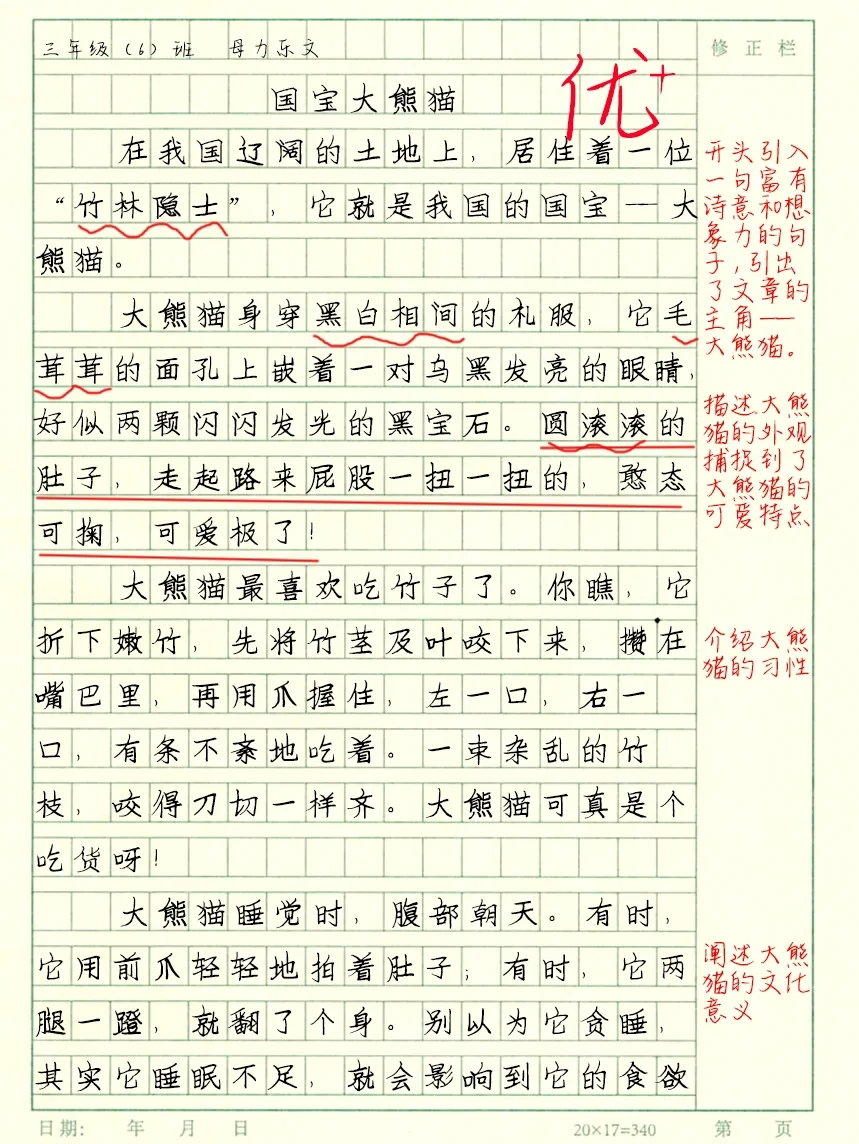 三年级（6）班 母力乐文
修正栏
优+
国宝大熊猫
在我国辽阔的土地上，居住着一位
“竹林隐士”，它就是我国的国宝——大
熊猫。
大熊猫身穿黑白相间的礼服，它毛
茸茸的面孔上嵌着一对乌黑发亮的眼睛，
好似两颗闪闪发光的黑宝石。圆滚滚的
肚子，走起路来屁股一扭一扭的，憨态
可掬，可爱极了！
大熊猫最喜欢吃竹子了。你瞧，它
折下嫩竹，先将竹茎及叶咬下来，攒在
嘴巴里，再用爪握住，左一口，右一
口，有条不紊地吃着。一束杂乱的竹
枝，咬得刀切一样齐。大熊猫可真是个
吃货呀！
大熊猫睡觉时，腹部朝天。有时，
它用前爪轻轻地拍着肚子；有时，它两
腿一蹬，就翻了个身。别以为它贪睡，
其实它睡眠不足，就会影响到它的食欲
开头引入
一句富有
诗意和想
象力的句
子，引出
了文章的
主角——
大熊猫。
描述大熊
猫的外观
捕捉到了
大熊猫的
可爱特点
介绍大熊
猫的习性
阐述大熊
猫的文化
意义
日期： 年 月 日 20×17=340 第 页